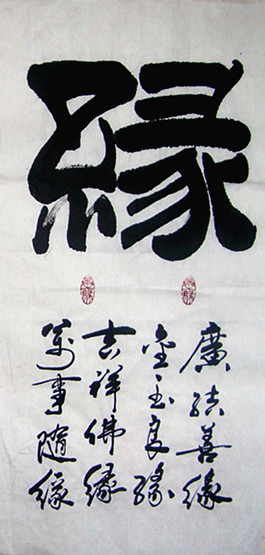 緣
廣結善緣
金玉良緣
吉祥佛緣
萬事隨緣